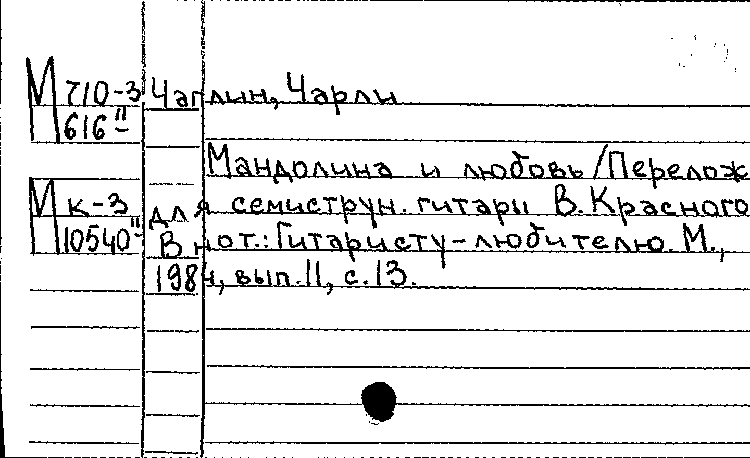 М 710-3 Чаплин, Чарли
616-II
Мандолина и любовь / Перелож.
М к-3 для семиструн. гитары В. Красного
10540-II В нот.: Гитаристу-любителю. М.,
1984, вып. 11, с. 13.